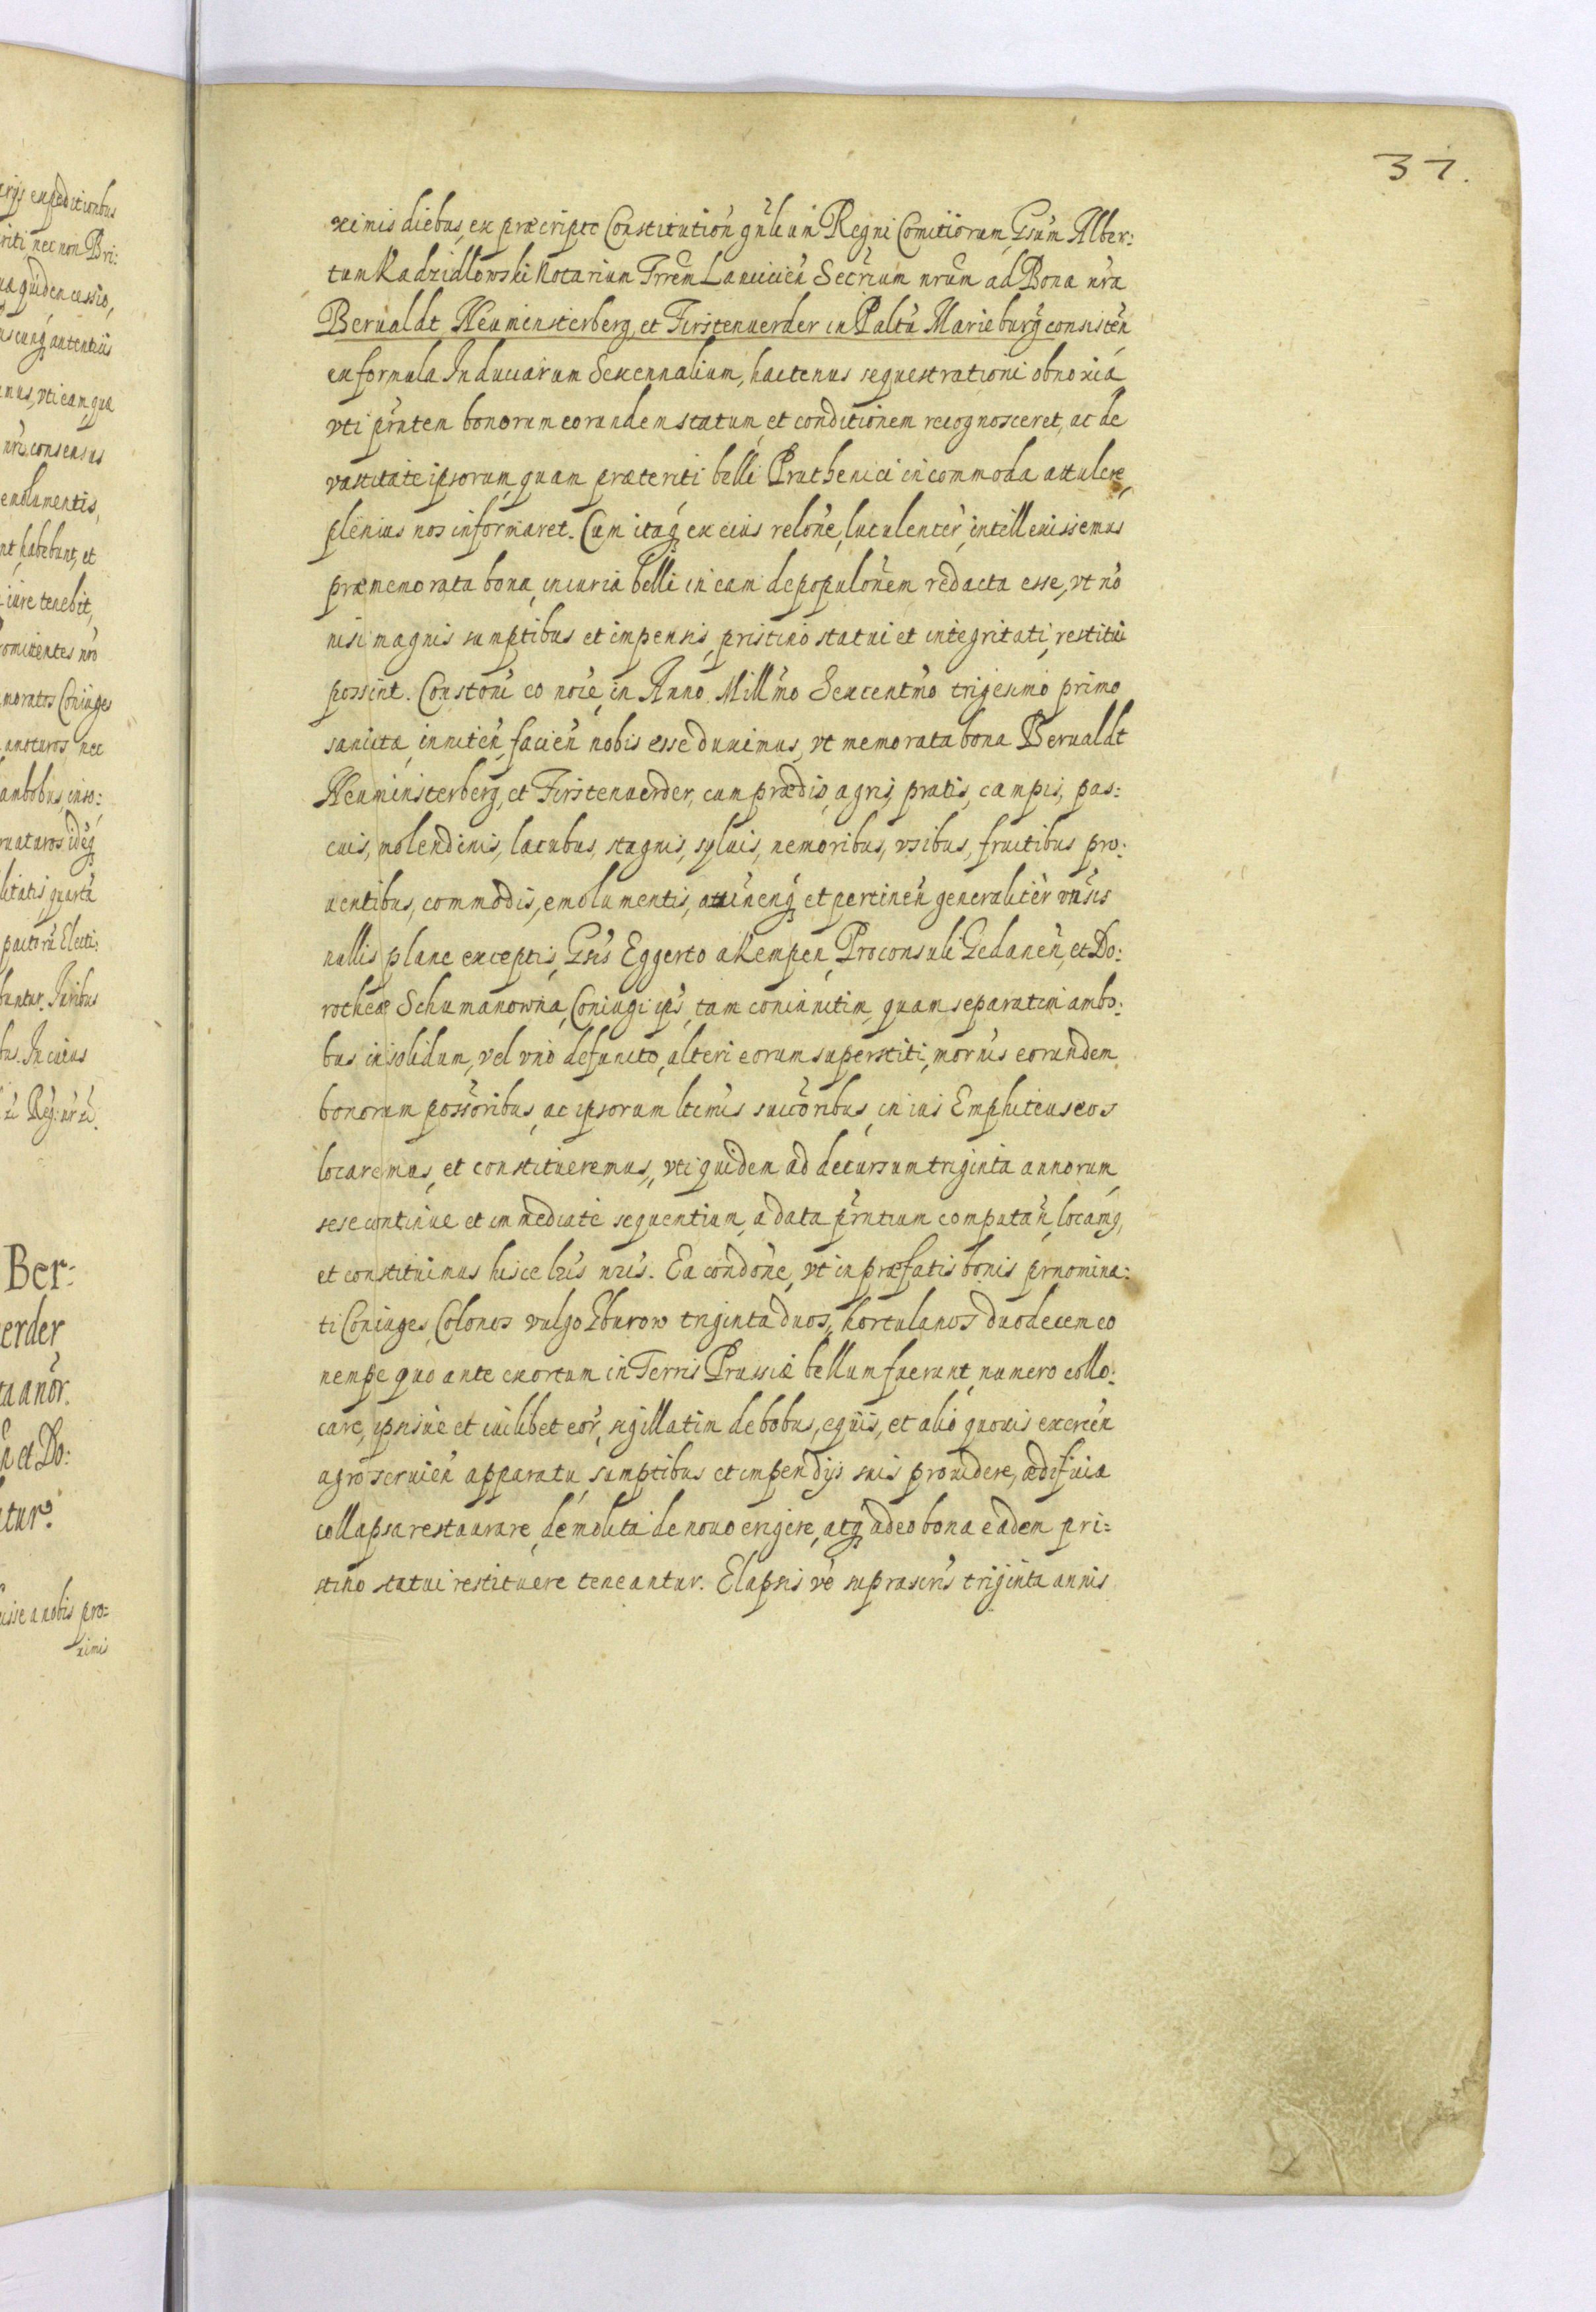 37.
ximis diebus, ex præscripto Constitutioñ gñlium Regni Comitiorum, Gsũm Alber:
tum Kadzidlowski Notarium Trrẽm Lanciciẽn Secrium nrũm ad Bona nr̃a
Berualdt Neuminsterberg, et Firstenuerder in Paltũ Marieburg̃ consistẽn
ex formula Induciarum Sexennalium, hactenus sequestrationi obnoxiá
vti prñtem bonorum eorundem statum, et conditionem recognosceret, ac de
vastitate ipsorum, quam præteriti belli Pruthenici incommoda attulere,
plenius nos informaret. Cum itaq ex eius relõne, luculenter, intellexissemus
præmemorata bona, iniuria belli in eam depopulõnem redacta esse, vt nõ
nisi magnis sumptibus et impensis, pristino statui et integritati, restitui
possint. Constõni eo noĩe, in Anno Millmõ Sexcentmõ trigesimo primo
sancitæ, innitẽn, faciẽn nobis esse duximus, vt memorata bona Berualdt
Neuminsterberg, et Firstenuerder, cum prædiis, agris, pratis, campis, pas:
cuis, molendinis, lacubus, stagnis, syluis, nemoribus, vsibus, fructibus pro:
uentibus, commodis, emolumentis, attinenq et pertinẽn generaliter vñsis
nullis plane exceptis, Gsis Eggerto a Kempen, Proconsuli Gedanẽn, et Do:
rotheæ Schumanowna, Coniugi ips̃, tam coniunctim, quam separatim ambo:
bus in solidum, vel vno defuncto, alteri eorum superstiti, mornis eorundem
bonorum possõribus, ac ipsorum ltimis succõribus, in ius Emphiteuseos
locaremus, et constitueremus, vti quidem ad decursum triginta annorum,
sese continue et immediate sequentium, a data prñtium computañ, locamq,
et constituimus hisce lr̃is nr̃is. Ea condõne, vt in præfatis bonis prnomina:
ti Coniuges, Colonos vulgo Gburow triginta duos, hortulanos duodecem eo
nempe quo ante exortum in Terris Prussiæ bellum fuerunt, numero collo:
care, ipsisue et cuilibet eor̃, sigillatim de bobus, equis, et alio quouis exercẽn
agro seruiẽn apparatu, sumptibus et impendijs suis prouidere, ædificia
collapsa restaurare, demolita de nouo erigere, atq adeo bona eadem pri=
stino statui restituere teneantur. Elapsis vẽ suprascris triginta annis